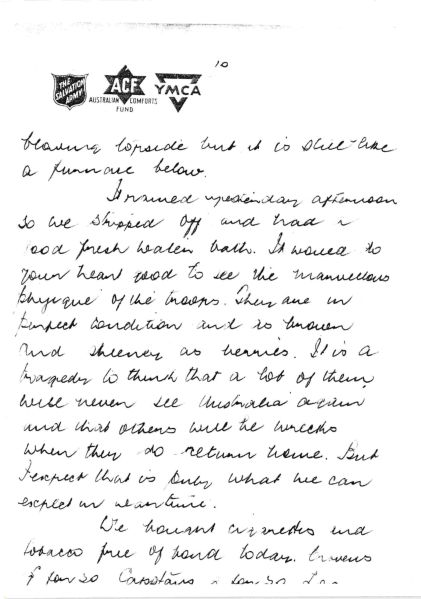 10
THE SALVATION ARMY
ACF
AUSTRALIAN COMFORTS FUND
YMCA
blowing topside but it is still like
a furnace below.
It rained yesterday afternoon
so we stripped off and had a
good fresh water bath. It would do
your heart good to see the marvellous
physique of the troops. They are in
perfect condition and as brown
and sheeney as berries. It is a
tragedy to think that a lot of them
will never see Australia again
and that others will be wrecks
when they do return home. But
I expect that is only what we can
expect in wartime.
We bought cigarettes and
tobacco free of bond today. Cravens
for 50 Capstans